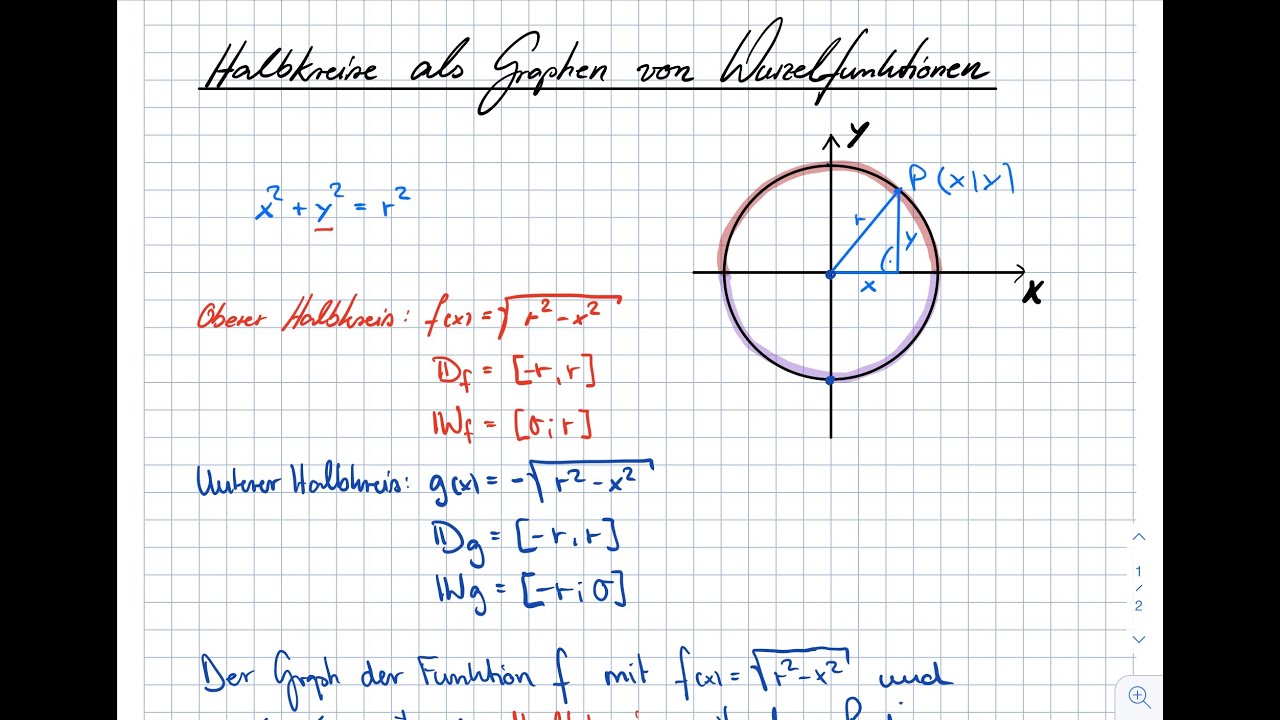 Halbkreise als Graphen von Wurzelfunktionen
y
P(x|y)
x² + y² = r²
r
y
x
x
Oberer Halbkreis: f(x) = √(r² - x²)
𝔻f = [-r, r]
𝕎f = [0; r]
Unterer Halbkreis: g(x) = -√(r² - x²)
𝔻g = [-r, r]
𝕎g = [-r; 0]
1
/
2
Der Graph der Funktion f mit f(x) = √(r² - x²) und